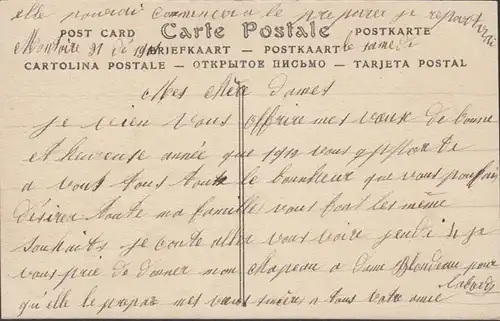 elle pourai commencer a le preparer je repartirai
POST CARD Carte Postale POSTKARTE
Montoire 31 dé 1911 BRIEFKAART — POSTKAART le samedi
CARTOLINA POSTALE — ОТКРЫТОЕ ПИСЬМО — TARJETA POSTAL
Mes Méde Dames
je vien vous offrire mes vœux de bonne
et heureuse année que 1912 vous apporte
a vous tous toute le bonheur que vous pouvais
désirer toute ma famille vous font les même
souhaits je conte aller vous voire jeudi 4 je
vous prie de donner mon chapeau a Dame Blondeau pour
qu'elle le prepar mes vœux sincère a tous votre amie